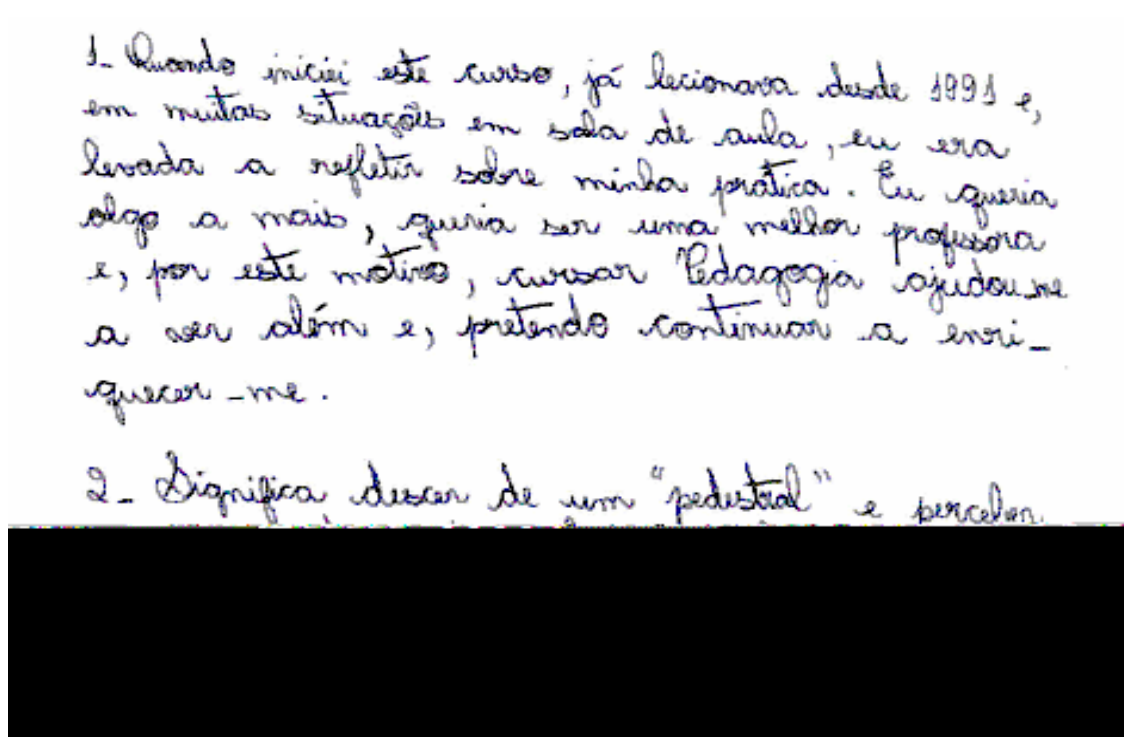 1- Quando iniciei este curso, já lecionava desde 1991 e,
em muitas situações em sala de aula, eu era
levada a refletir sobre minha prática. Eu queria
algo a mais, queria ser uma melhor professora
e, por este motivo, cursar Pedagogia ajudou-me
a ver além e, pretendo continuar a enri-
quecer-me.
2- Significa descer de um "pedestral" e perceber